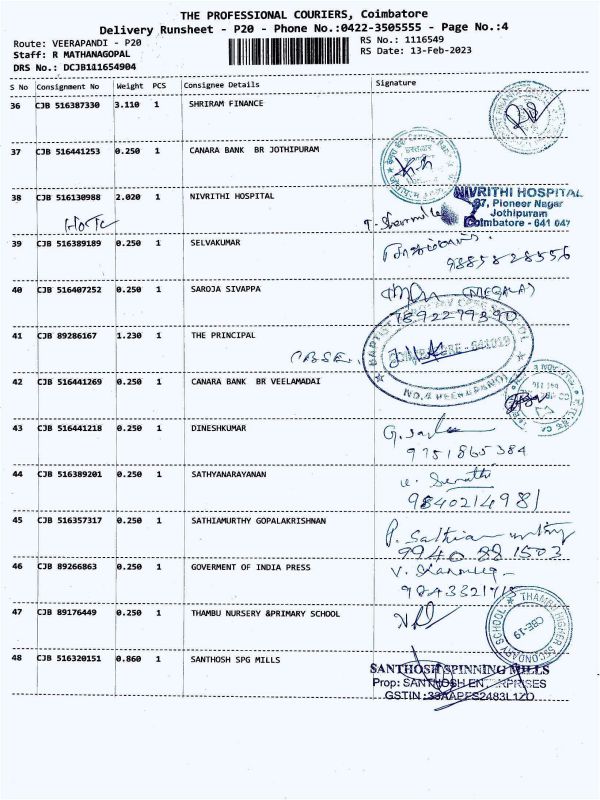 THE PROFESSIONAL COURIERS, Coimbatore
Delivery Runsheet - P20 - Phone No.:0422-3505555 - Page No.:4
Route: VEERAPANDI - P20
RS No.: 1116549
Staff: R MATHANAGOPAL
RS Date: 13-Feb-2023
DRS No.: DCJB111654904
S No Consignment No Weight PCS Consignee Details Signature
36 CJB 516387330 3.110 1 SHRIRAM FINANCE
37 CJB 516441253 0.250 1 CANARA BANK BR JOTHIPURAM
38 CJB 516130988 2.020 1 NIVRITHI HOSPITAL
NIVRITHI HOSPITAL
37, Pioneer Nagar
Jothipuram
Coimbatore - 641 047
39 CJB 516389189 0.250 1 SELVAKUMAR
9885828556
40 CJB 516407252 0.250 1 SAROJA SIVAPPA
(MEGALA)
7892279390
41 CJB 89286167 1.230 1 THE PRINCIPAL
(CBSE)
COIMBATORE - 641019
42 CJB 516441269 0.250 1 CANARA BANK BR VEELAMADAI
43 CJB 516441218 0.250 1 DINESHKUMAR
9751865384
44 CJB 516389201 0.250 1 SATHYANARAYANAN
9840214981
45 CJB 516357317 0.250 1 SATHIAMURTHY GOPALAKRISHNAN
P. Sathiamurthy
9940881503
46 CJB 89266863 0.250 1 GOVERMENT OF INDIA PRESS
47 CJB 89176449 0.250 1 THAMBU NURSERY &PRIMARY SCHOOL
THAMBU HIGHER SECONDARY SCHOOL
CBE-19
48 CJB 516320151 0.860 1 SANTHOSH SPG MILLS
SANTHOSH SPINNING MILLS
Prop: SANTHOSH ENTERPRISES
GSTIN :33AAPES2483L1ZO